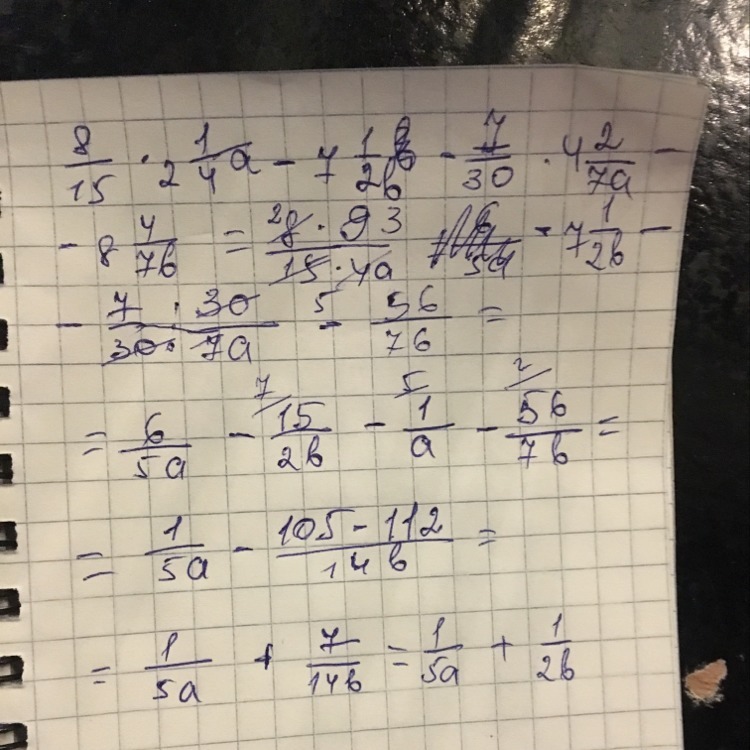 8/15 · 2 1/4a - 7 1/2b - 7/30 · 4 2/7a -
- 8 4/7b = 8 · 9 3 / 15 · 4a - 7 1/2b -
- 7 · 30 / 30 · 7a - 56/7b =
= 6/5a - 15/2b - 1/a - 56/7b =
= 1/5a - 105 - 112 / 14b =
= 1/5a + 7/14b = 1/5a + 1/2b